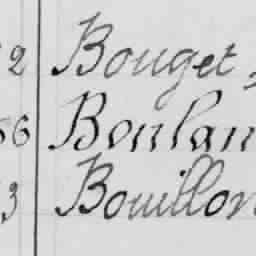 2 Bouget,
56 Boulan
3 Bouillon